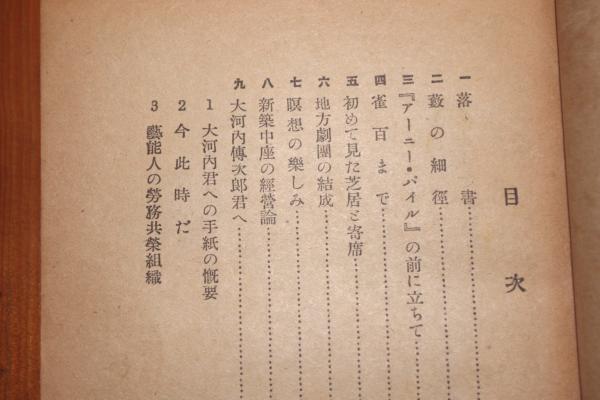 目次
一 落書
二 藪の細徑
三 『アーニー・パイル』の前に立ちて
四 雀百まで
五 初めて見た芝居と寄席
六 地方劇團の結成
七 瞑想の樂しみ
八 新築中座の經營論
九 大河內傳次郎君へ
1 大河內君への手紙の慨要
2 今此時だ
3 藝能人の勞務共榮組織